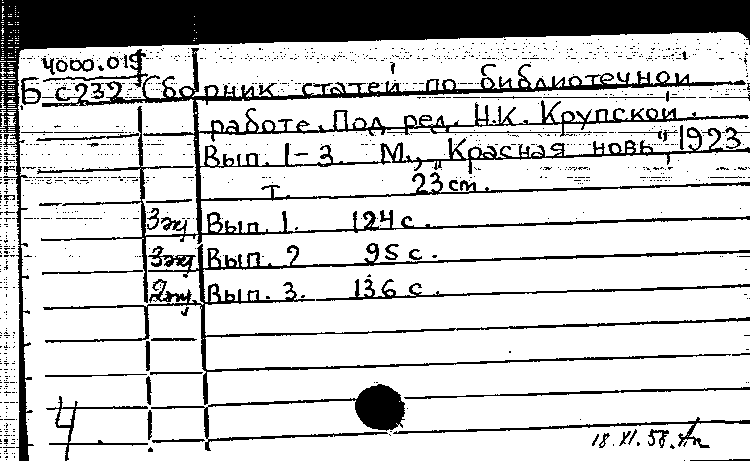 4000.019
Б с232 Сборник статей по библиотечной
работе. Под ред. Н.К. Крупской.
Вып. 1-3. М., „Красная новь", 1923
т. 23 cm.
3 экз Вып. 1. 124 с.
3 экз Вып. 2 95 с.
2 экз. Вып. 3. 136 с.
4
18.XI.58.